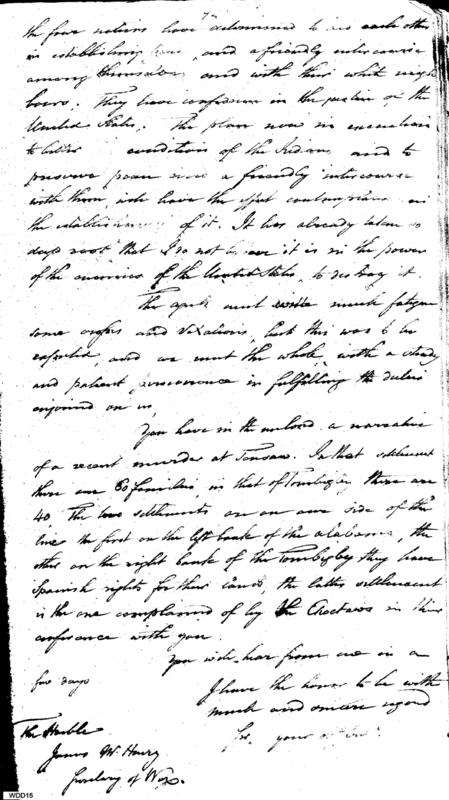 the four nations have determined to each other
in establishing and a friendly intercourse
among themselves and with their white neigh
bours. They have confidence in the justice of the
United States. The plan now in execution
to better condition of the Indians and to
preserve peace and a friendly intercourse
with them, will have the effect contemplated in
the establishment of it. It has already taken so
deep root that I do not believe it is in the power
of the enemies of the United States, to destroy it.
The agents must much fatigue
some and vexations, but this was to be
expected, and we meet the whole with a steady
and patient perseverance in fulfilling the duties
enjoined on us,
You have in the enclosed a narrative
of a recent murder at Tensaw. In that settlement
there are 60 families in that of Tombigby there are
40. The two settlements are on our side of the
line the first on the left bank of the alabama, the
other on the right bank of the Tombigby they have
Spanish rights for their lands, the latter settlement
is the one complained of by the Choctaws in their
conference with you.
You will hear from me in a
few days
I have the honor to be with
much and sincere regard
Sir, your
The Honble
James McHenry
Secretary of War.
WDD15